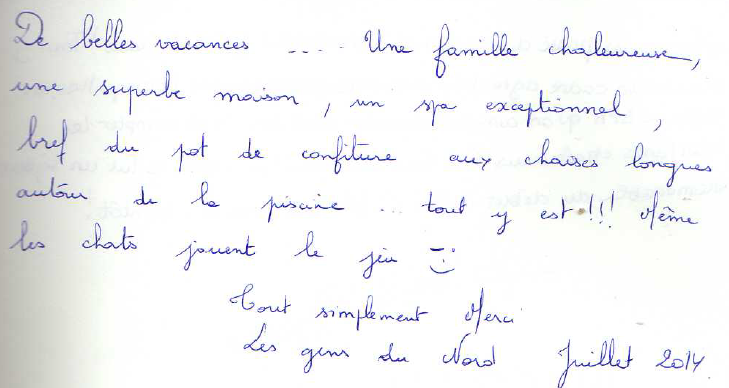 De belles vacances .... Une famille chaleureuse,
une superbe maison, un spa exceptionnel,
bref du pot de confiture aux chaises longues
autour de la piscine ... tout y est !!! Même
les chats jouent le jeu :)
Tout simplement Merci
Les gens du Nord Juillet 2014